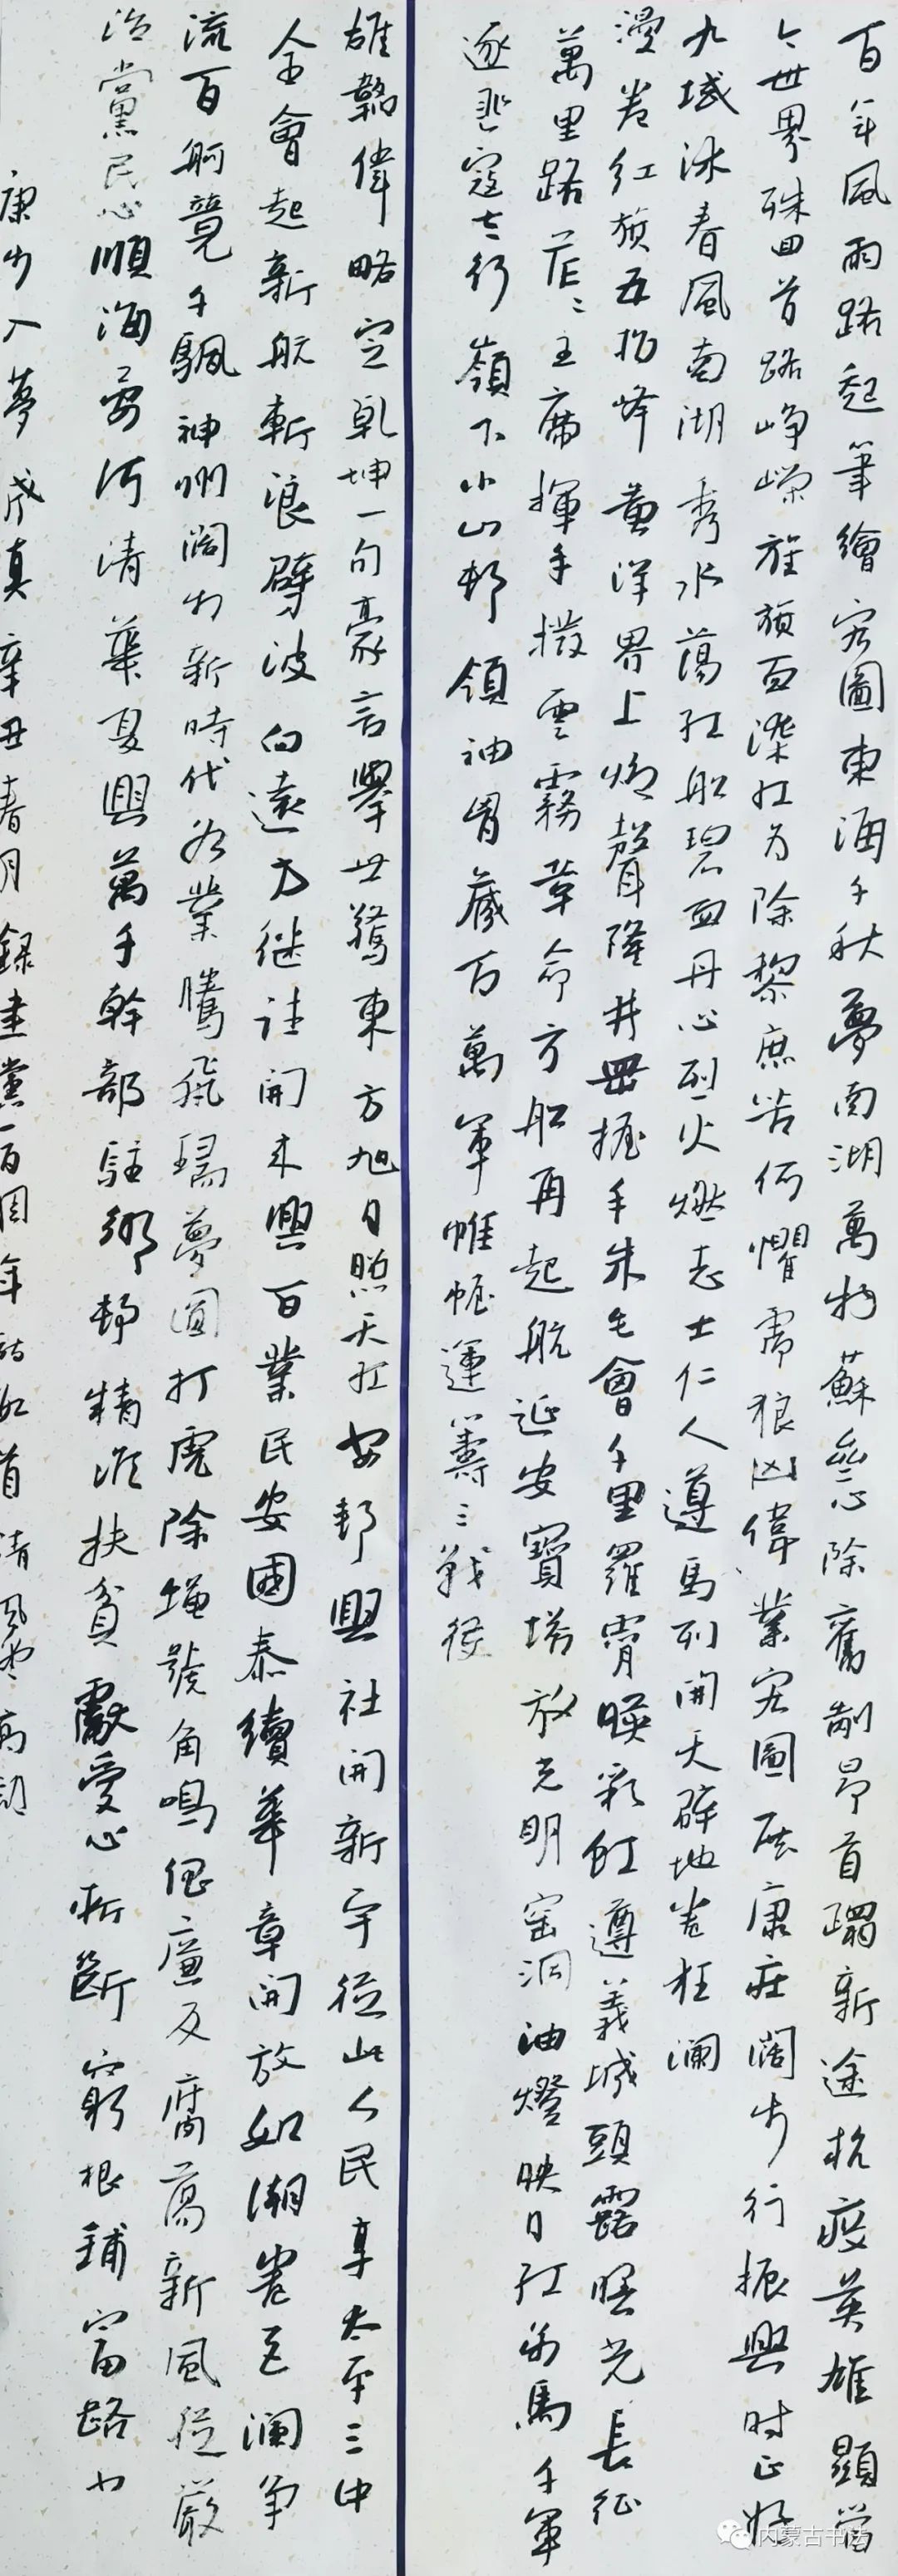 百年風雨路起筆繪宏圖東海千秋夢南湖萬物蘇參除舊制昂首躍新途抗疫英雄顯當
今世界殊回首路崢嶸旌旗血染紅为除黎庶苦何懼虎狼凶偉業宏圖展康莊闊步行振興时正好
九域沐春風南湖秀水蕩红船碧血丹心烈火燃志士仁人遵馬列開天辟地卷狂瀾
漫卷红旗五指峰黃洋界上炮聲隆井岡握手朱毛會千里羅霄映彩虹遵義城頭露曙光長征
萬里路茫々主席揮手撥雲霧革命方船再起航延安寶塔放光明窑洞油燈映日红兵馬千軍
逐悲寇太行嶺下小山邨領袖胃藏百萬軍帷幄運籌三战役
雄韜偉略定乾坤一句豪言舉世驚東方旭日照天红安邦興社開新宇從此人民享太平三中
全會起新航斬浪劈波向遠方继往開来興百業民安國泰續華章開放如潮卷巨瀾争
流百舸競千颿神州闊步新時代各業騰飛瑞夢圓打虎除蠅號角鳴倡廉反腐蕩新風從嚴
治黨民心順海晏河清華夏興萬千幹部駐鄉邨精准扶貧獻愛心斬斷窮根鋪富路小
康步入夢成真辛丑春月録建黨一百周年詩如首清風
内蒙古书法